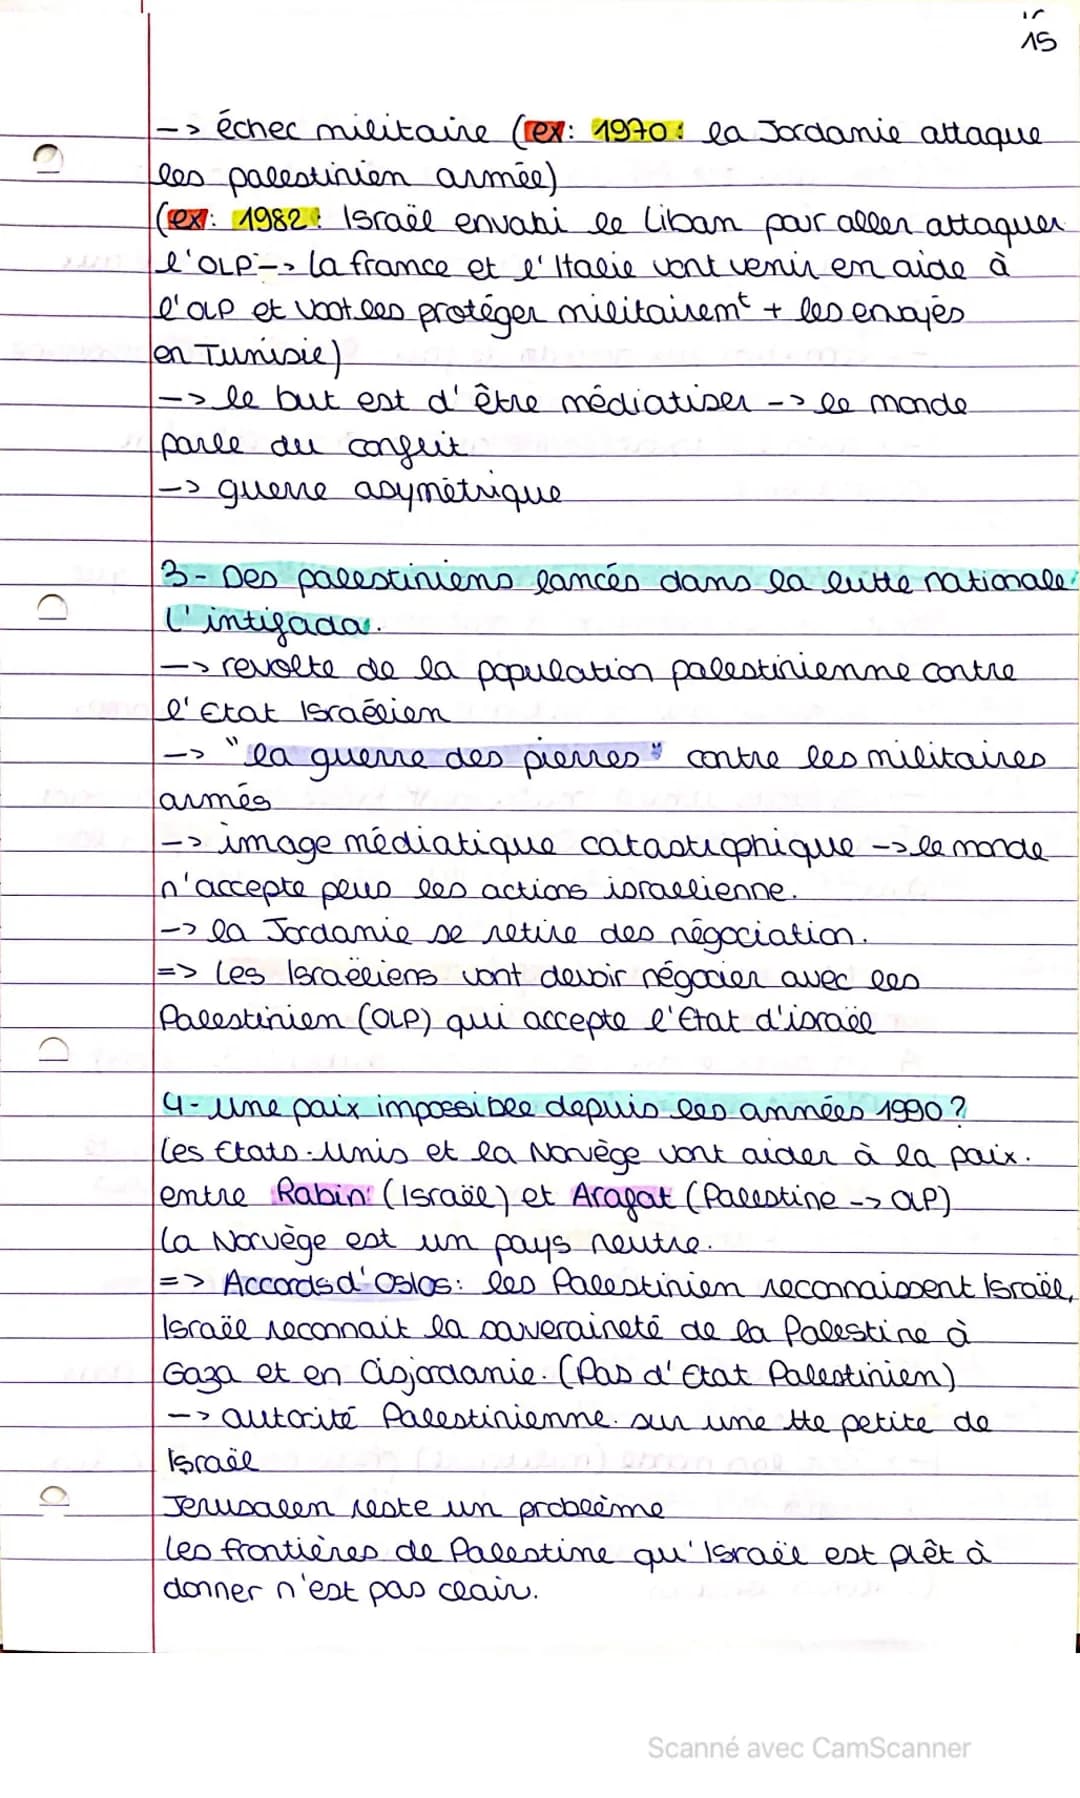 15
--> échec militaire (ex: 1970: la Jordanie attaque
les palestinien armée)
(ex: 1982: Israël envahi le Liban par aller attaquer
l'OLP--> La france et l'Italie vont venir en aide à
l'OLP et vont les protéger militairemt + les envoyés
en Tunisie)
--> le but est d'être médiatiser --> le monde
parle du conflit
--> guerre asymétrique
3- Des palestiniens lancés dans la lutte nationale:
l'intifada.
--> revolte de la population palestinienne contre
l'Etat Israélien
--> "la guerre des pierres" contre les militaires
armés
--> image médiatique catastrophique --> le monde
n'accepte plus les actions israelienne.
--> la Jordanie se retire des négociation.
=> Les Israëliens vont devoir négocier avec les
Palestinien (OLP) qui accepte l'Etat d'israël
4- Une paix impossible depuis les années 1990?
Les Etats-Unis et la Norvège vont aider à la paix.
entre Rabin (Israël) et Arafat (Palestine --> OLP)
La Norvège est un pays neutre.
=> Accords d'Oslos: les Palestinien reconnaissent Israël,
Israël reconnait la souveraineté de la Palestine à
Gaza et en Cisjordanie. (Pas d'Etat Palestinien)
--> autorité Palestinienne. sur une tte petite de
Israël
Jerusalem reste un problème
Les frontières de Palestine qu'Israël est prêt à
donner n'est pas clair.
Scanné avec CamScanner